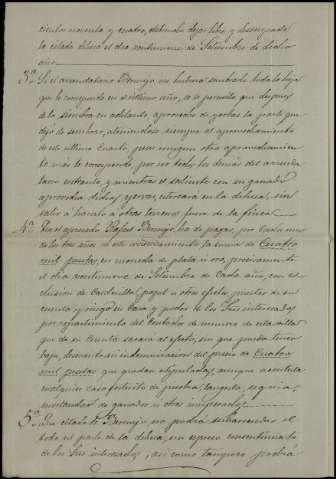 cientos noventa y cuatro, debiendo dejar libre y desocupada
la citada dehesa el dia veintinueve de Setiembre de dicho
año
3ª Si el arrendatario Bermejo no hubiera sembrado toda la hoja
que le corresponda en el último año, se le permitira que despues
de la siembra en adelante, aproveche de yerbas la parte que
deje de sembrar, abriendose siempre el aprovechamiento
de este último Cuarto, pues ningun otro aprovechamiento
de más le corresponde, por ser todos los demás del arrenda-
tario entrante, y mientras el saliente con su ganado
aprovecha dichas yerbas, estercará en la dehesa, sin
salir a hacerlo a otros terrenos fuera de la finca
4ª Por el expresado Rafael Bermejo, ha de pagar, por cada uno
de los tres años de este arrendamiento la suma de Cuatro
mil pesetas, en moneda de plata ú oro, precisamente
el dia veintinueve de Setiembre de cada año, con es-
clusion de Calderilla, papel u otros efectos, puestas de su
cuenta y riesgo en Casa y poder de los Sres interesados
por repartimiento del Contador de menores de esta villa
que de su cuenta sacará al efecto, sin que pueda tener
baja, descuento ni indemnizacion del precio de Cuatro
mil pesetas que quedan estipuladas, aunque acontezca
cualquier caso fortuito de piedra, langosta, sequia,
mortandad de ganados ú otros inesperados
5ª Don citado Sr Bermejo no podrá subarrendar el
todo ni parte de la dehesa, sin espreso consentimiento
de los Sres interesados, asi como tampoco podrá